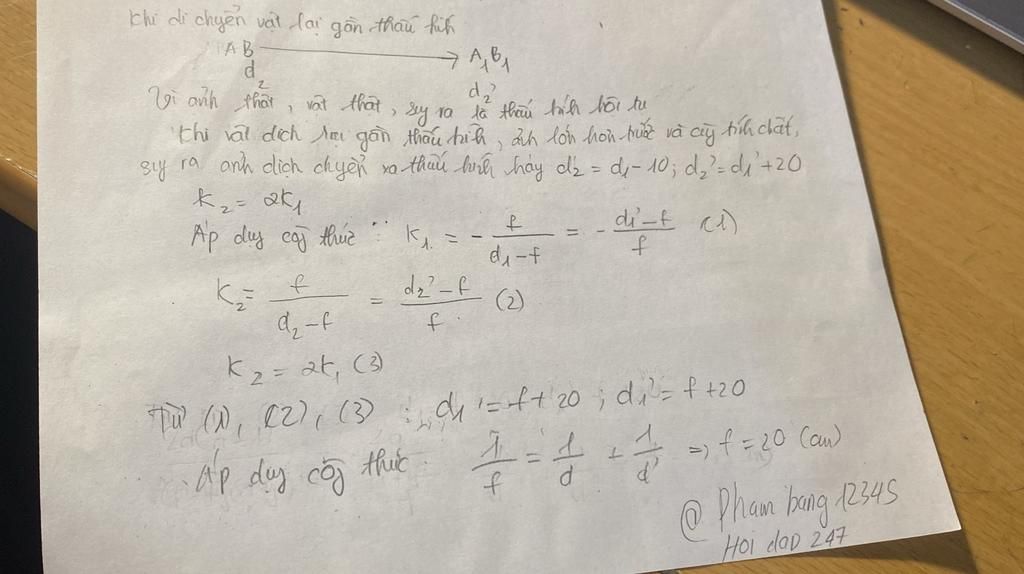 Khi di chuyển vật lại gần thấu kính
AB → A₁B₁
d₂ d₂'
Vì ảnh thật, vật thật, suy ra là thấu kính hội tụ
Khi vật dịch lại gần thấu kính, ảnh lớn hơn trước và cùng tính chất,
suy ra ảnh dịch chuyển xa thấu kính hay d₂ = d₁ - 10; d₂' = d₁' + 20
K₂ = 2K₁
Áp dụng công thức : K₁ = - f/(d₁-f) = - (d₁'-f)/f (1)
K₂ = f/(d₂-f) = (d₂'-f)/f (2)
K₂ = 2K₁ (3)
Từ (1), (2), (3) : d₁' = f+20 ; d₁' = f+20
Áp dụng công thức : 1/f = 1/d + 1/d' => f = 20 (cm)
@ Pham bang 12345
HOI daD 247